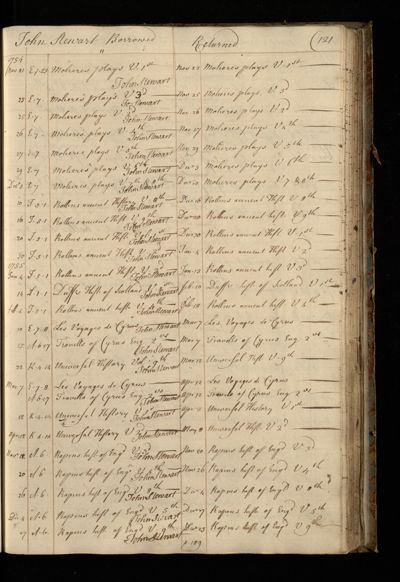 John Stewart Borrowed Returned 121
1754
Nov 21 E.7.23 Molieres plays V 1st Nov 22 Molieres plays V. 1st
John Stewart
E.7. Molieres plays V 3d Nov 25 Molieres plays V 3d
Jo Stewart
25 E.7. Molieres plays V Nov 26 Molieres plays V
John Stewart
26 E.7. Molieres plays V 4th Nov 27 Molieres plays V 4th
John Stewart
27 E.7 Molieres plays V 5th Molieres plays V 5th
John Stewart
29 E.7 Molieres plays V 6th Dec 3 Molieres plays V 6th
John Stewart
Dec 3 E.7 Molieres plays V 7 & 8th Dec 10 Molieres plays V 7 & 8th
John Stewart
10 Rollins ancient History V Dec 16 Rollins ancient Hist V
John Stewart
16 Rollins ancient Hist V Dec 20 Rollins ancient hist. V
John Stewart
20 Rollins ancient Hist V 1st Dec 30 Rollins ancient Hist V. 1st
John Stewart
30 Rollins ancient Hist V Jan 4 Rollins ancient Hist V 2d
1755 John Stewart
Jan 4 Rollins ancient Hist V Jan 13 Rollins ancient hist V 3d
John Stewart
14 Duffs Hist of Scotland Feb 10 Duffs hist of Scotland V 1st
John Stewart
Feb Rollins ancient hist V 4th Feb 18 Rollins ancient hist V 4th
John Stewart
E.7.8 Les Voyages de Cyrus Mar 7 Les Voyages de Cyrus
John Stewart
A.6.47 Travells of Cyrus Eng 2 vo Mar 7 Travells of Cyrus Eng 2 vo
John Stewart
K.4.14 Universal History Vol 9th Mar 12 Universal Hist V 9th
John Stewart
Mar 7 E.7.8 Les Voyages de Cyrus Apr 12 Les Voyages de Cyrus
A.6.47 Travells of Cyrus Eng 2 vo Apr 12 Travels of Cyrus Eng 2 vo
John Stewart
12 K.4.14 Universal History V 1st Apr Universal History V 1st
John Stewart
Apr 12 K.4.14 Universal History V May 8 Universal Hist V 3d
John Stewart
Nov 18 A.6. Rapins hist of Engd V Nov 20 Rapins hist of Engd V 3d
John Stewart
20 A.6 Rapins hist of Engd V 4th Nov 26 Rapins hist of Engd V 4th
John Stewart
26 A.6. Rapins hist of Engd V 8th Dec 4 Rapins hist of Engd V 8th
John Stewart
Dec 4 A.6. Rapins hist of Engd V 5th Dec 17 Rapins hist of Engd V 5th
John Stewart
17 A.6. Rapins hist of Engd V. 9th Dec 23 Rapins hist of Engd V 9th
John Stewart p. 189